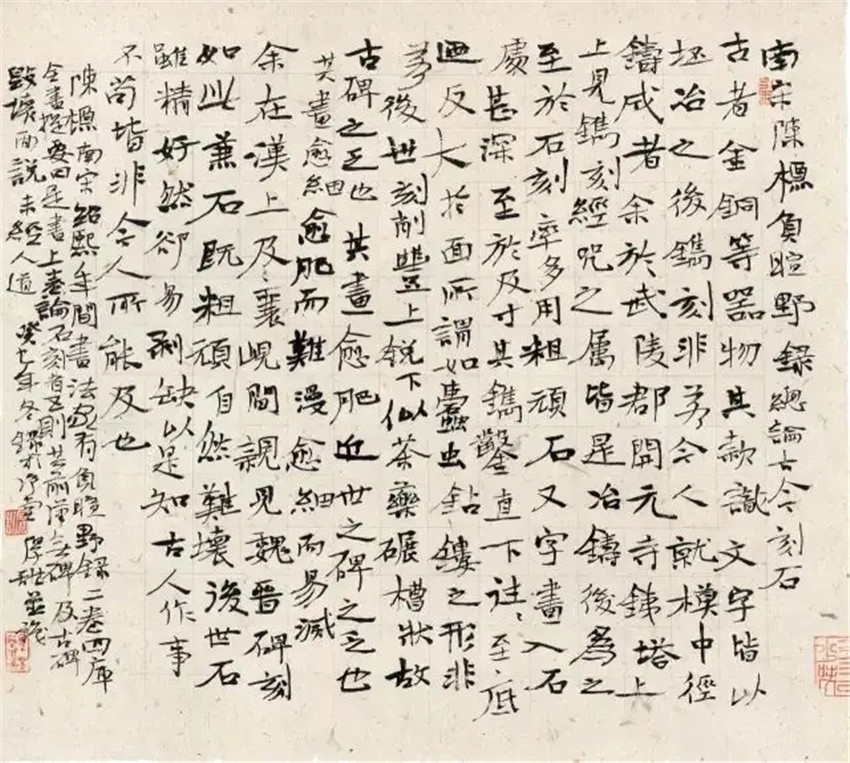 南宋陳槱負暄野錄總論古今刻石
古者金銅等器物其款識文字皆以
坯冶之後鐫刻非若今人就模中徑
鑄成者余於武陵郡開元寺銕塔上
上見鐫刻經咒之屬皆是冶鑄後為之
至於石刻率多用粗頑石又字畫入石
處甚深至於及寸其鐫鑿直下往〻至底
迺反大於面所謂如蠹虫鉆鏤之形非
若後世刻削豐上銳下似茶藥碾槽狀故
古碑之乏也其畫愈肥近世之碑之乏也
其畫愈細愈肥而難漫愈細而易滅
余在漢上及襄峴間親見魏晉碑刻
如此兼石既粗頑自然難壞後世石
雖精好然卻易剝缺以是知古人作事
不苟皆非今人所能及也
陳槱南宋紹熙年間書法家有負暄野錄二卷四庫
全書提要曰是書上卷論石刻者五則其前漢無碑及古碑
毀壞兩說未經人道 癸巳年冬錄於堂 並識